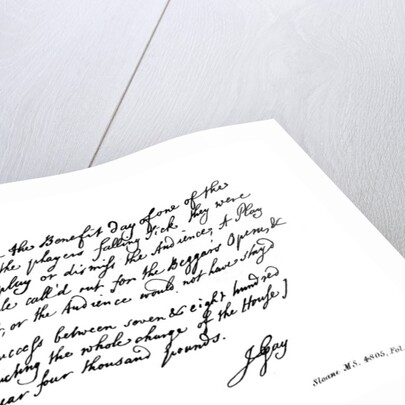 the Benefit Day of one of the
the players falling sick they were
play or dismiss the Audience, A Play
call'd out for the Beggars Opera, &
, or the Audience would not have stay'd
success between seven & eight hundred
the whole charge of the House]
four thousand pounds.
J Gay
Sloane MS. 4805, Fol.